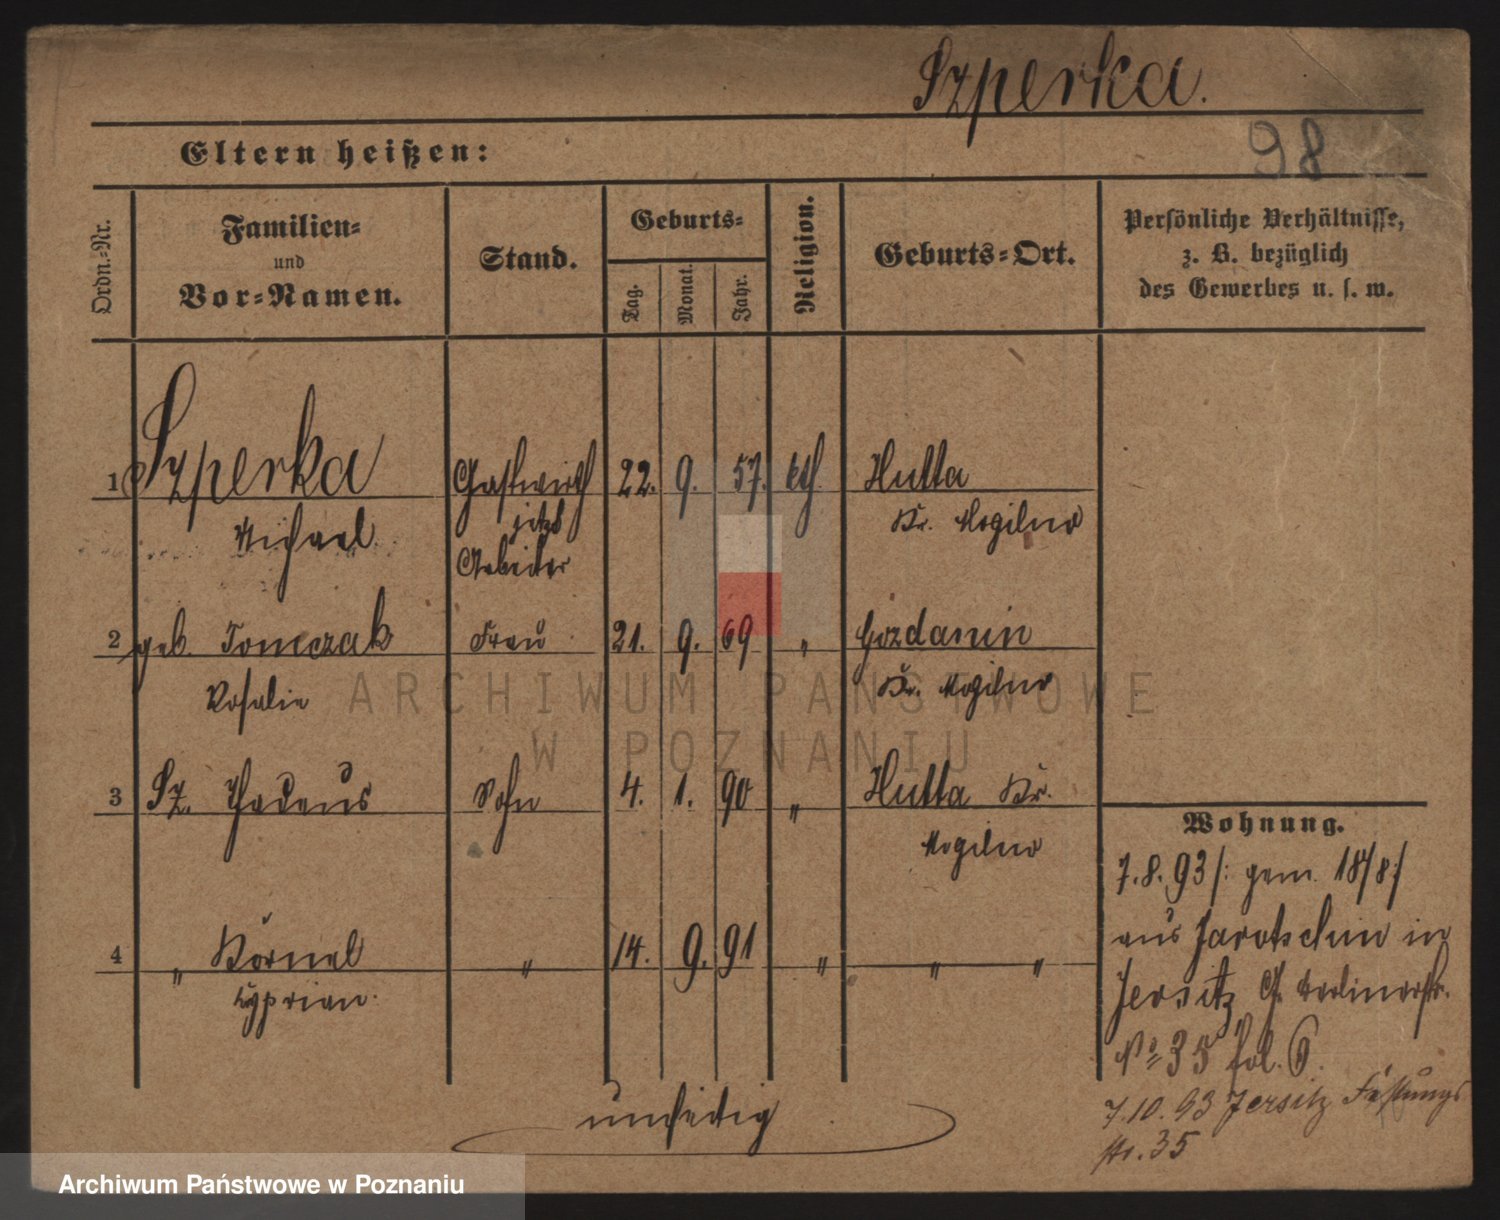 Szperka.
98
Eltern heißen:
Ordn.-Nr.
Familien-
und
Vor-Namen.
Stand.
Geburts-
Tag.
Monat.
Jahr.
Religion.
Geburts-Ort.
Persönliche Verhältnisse,
z. B. bezüglich
des Gewerbes u. s. w.
1 Szperka Gastwirth 22. 9. 57. kth Hutta
Michael jetzt Kr. Mogilno
Arbeiter
2 geb. Tomczak Frau 21. 9. 69 " Gozdanin
Rosalie Kr. Mogilno
3 Sz. Thadeus Sohn 4. 1. 90 " Hutta Kr.
Mogilno
4 " Kornel " 14. 9. 91 " " "
Cyprian.
Wohnung.
7.8.93/: gem. 18/8:/
aus Jarotschin in
Jersitz Gr. Berlinerstr.
No 35 fol. 6.
7.10.93 Jersitz Festungs
str. 35
umseitig
ARCHIWUM PAŃSTWOWE
W POZNANIU
Archiwum Państwowe w Poznaniu